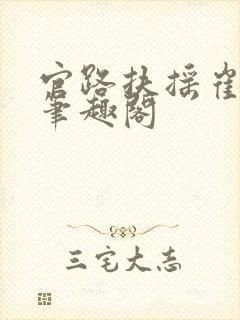 官路扶摇崔
笔趣阁
三宅大志